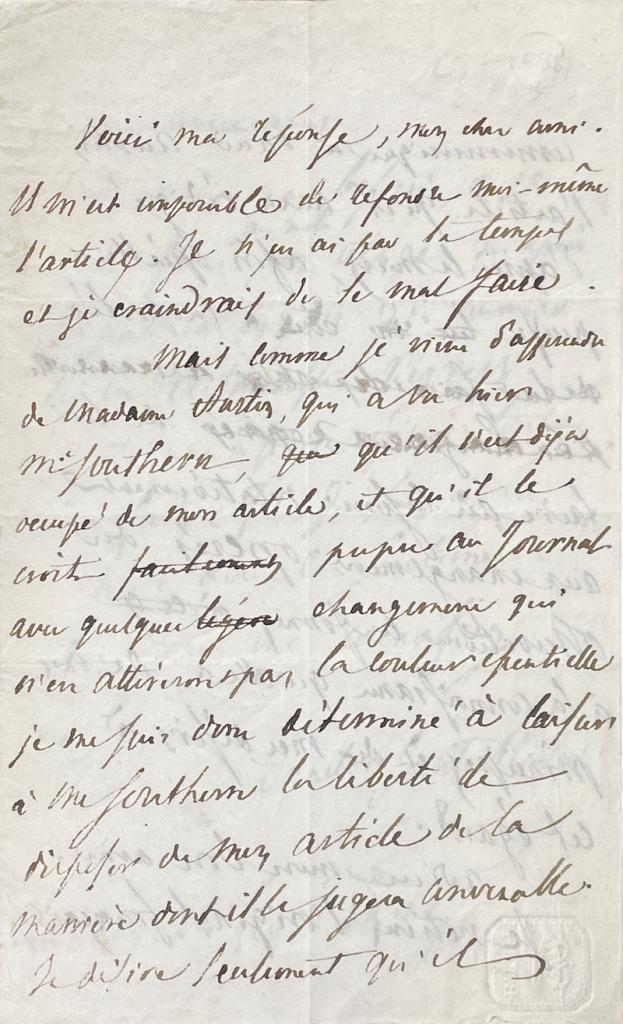 Voici ma réponse, mon cher ami.
Il m'est impossible de refondre moi-même
l'article. Je n'en ai pas le temps
et je craindrais de le mal faire.
Mais comme je viens d'apprendre
de Madame Austin, qui a vu hier
Mr Southern, que qu'il s'est déjà
occupé de mon article, et qu'il le
croit facilement propre au Journal
avec quelques légers changemens qui
n'en altèreront pas la couleur essentielle
je me suis donc déterminé à laisser
à Mr Southern la liberté de
disposer de mon article de la
manière dont il le jugera convenable.
Je désire seulement qu'il